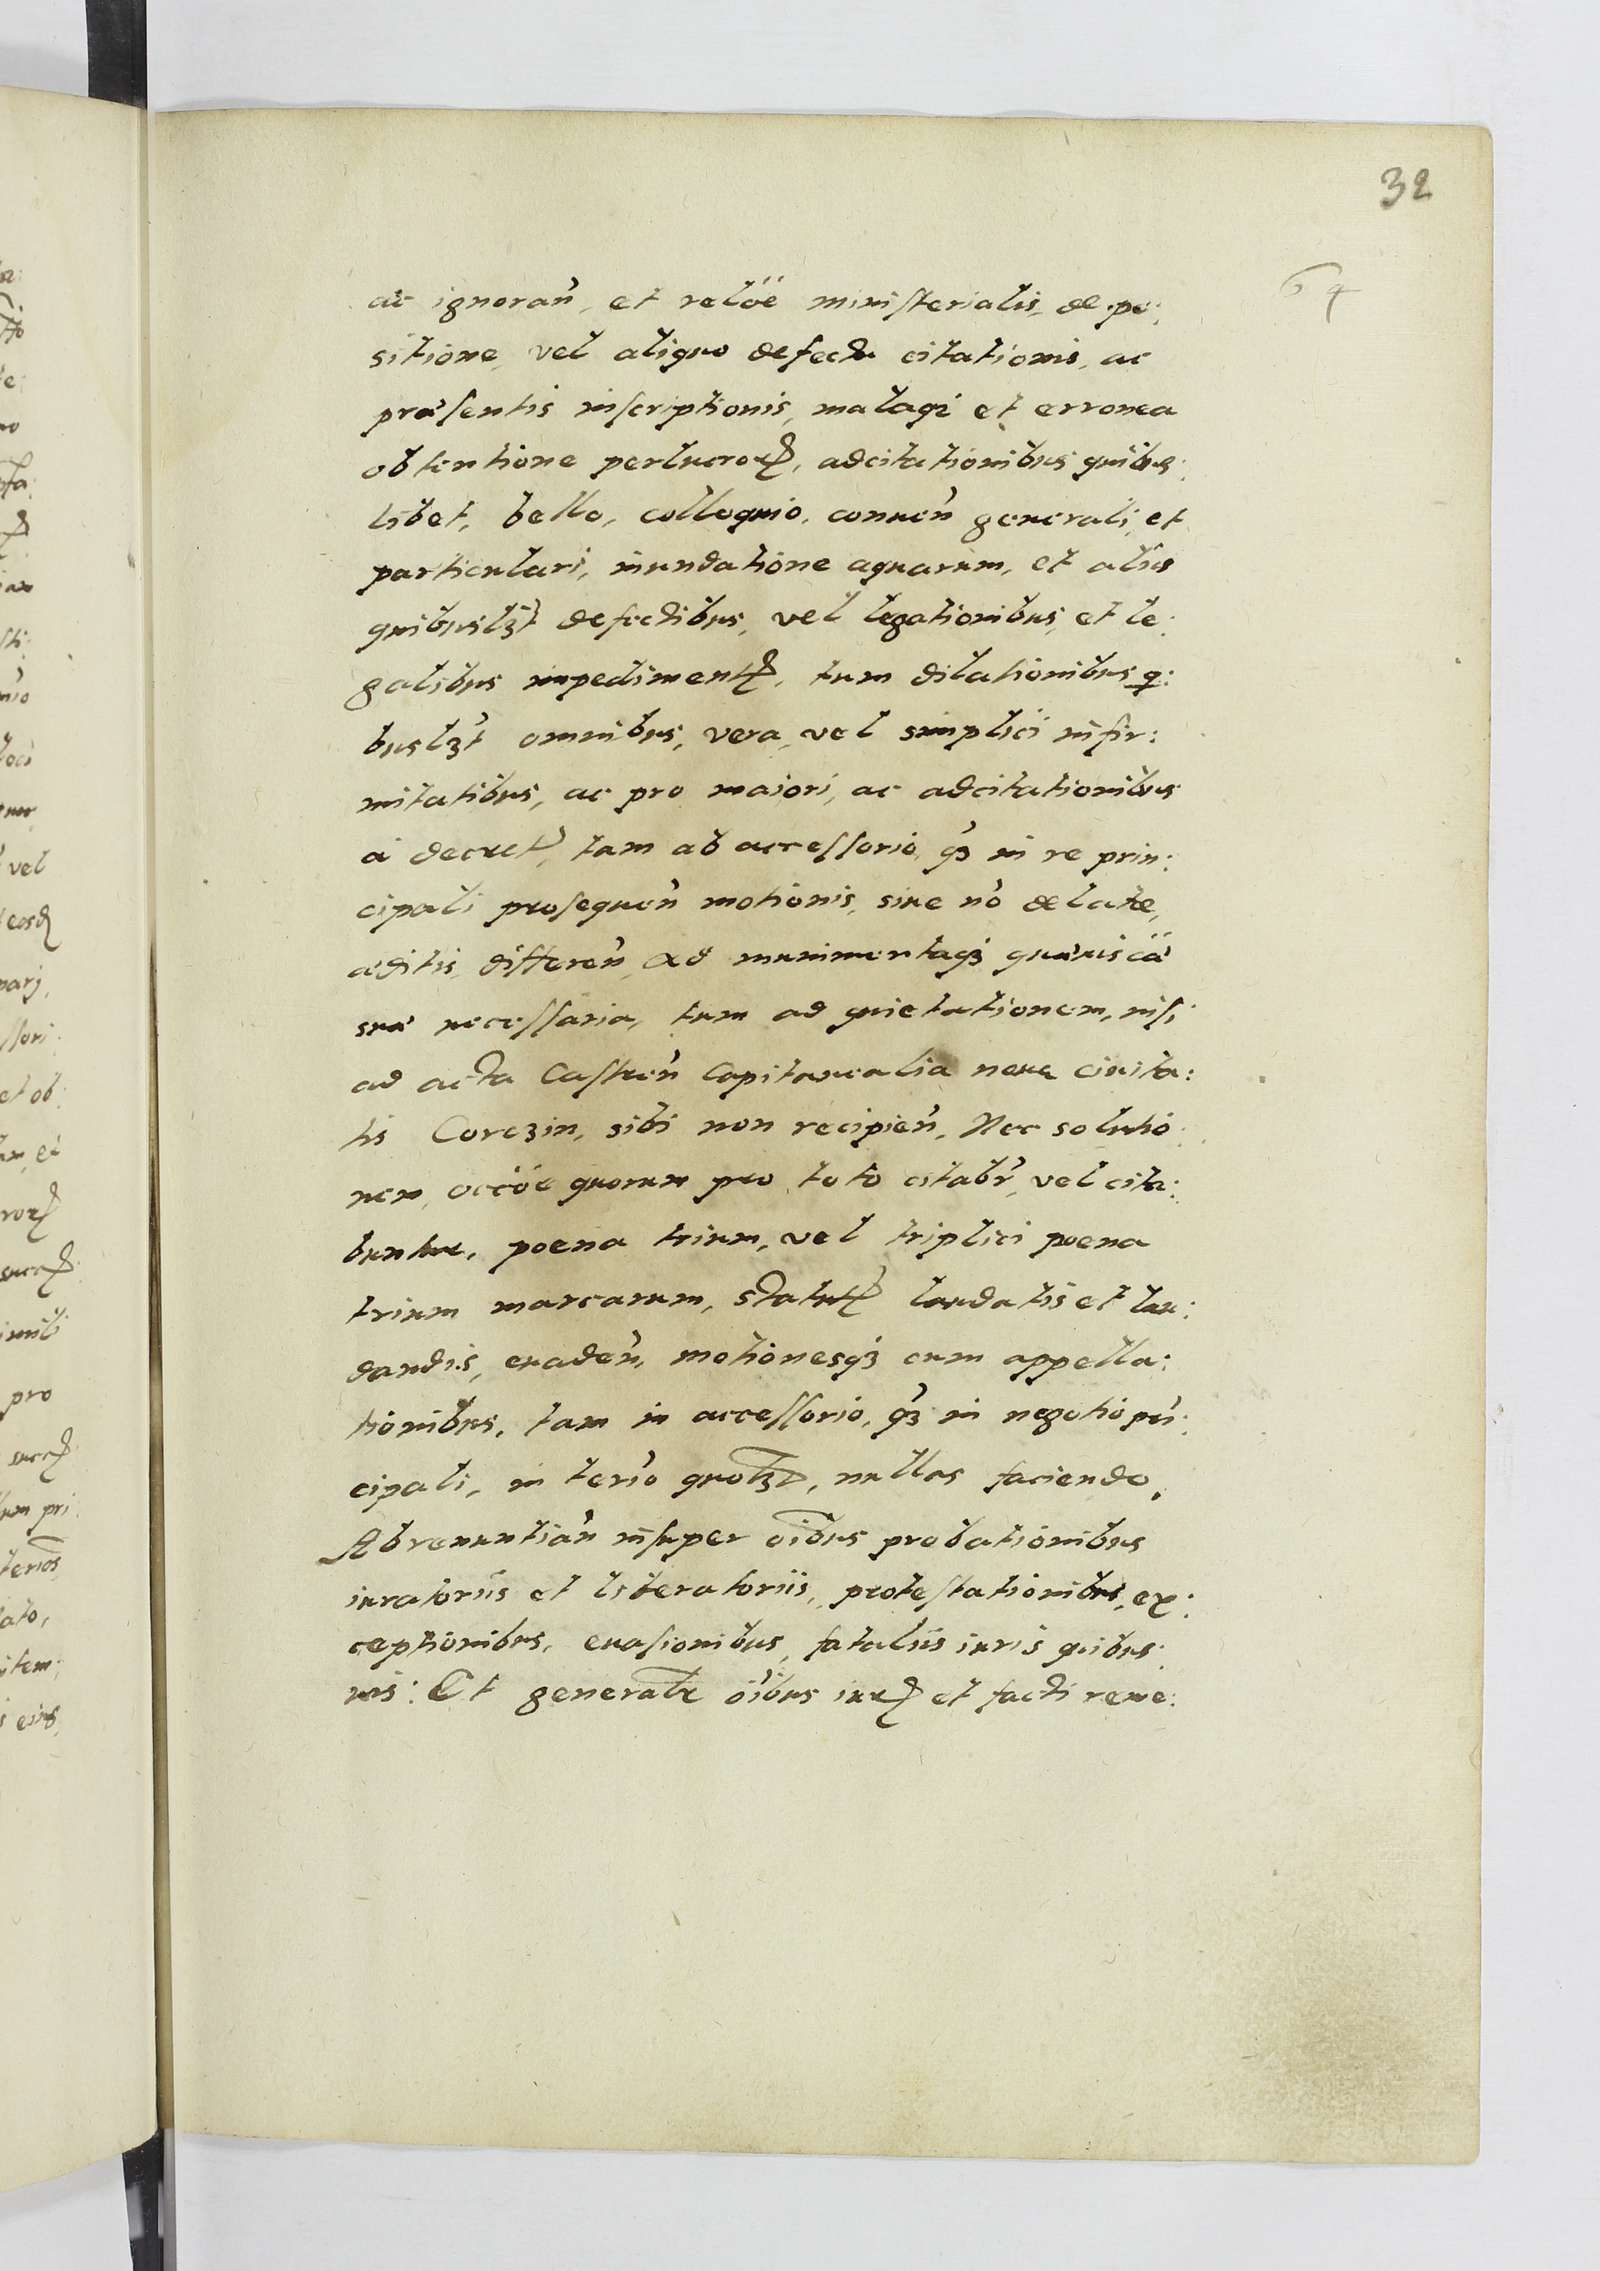 32
64
ac ignorañ, et relöe ministerialis, de po:
sitione, vel aliquo defectu citationis, ac
præsentis inscriptionis, malaqȝ et erronea
obtentione perlucroꝝ, adcitationibus quibus:
libet, bello, colloquio, conuen̄ generali, et
particulari, inundatione aquarum, et aliis
quibuslȝt defectibus, vel legationibus, et le:
galibus impedimentꝭ, tum dilationibus q:
buslȝt omnibus, vera, vel simplici infir:
mitatibus, ac pro maiori, ac adcitationibus
à decretꝭ, tam ab accessorio, qȝ in re prin:
cipali prosequeñ motionis, siue nō delate,
æditis, differeñ, ad munimentaqȝ quæuis cä
sua necessaria, tum ad quietationem, nisi
ad acta Castreñ Capitanealia neue ciuita:
tis Corczin, sibi non recipieñ, Nec solutio:
nem, occöe quorum pro toto citabr̄, vel cita:
buntur, poena trium, vel triplici poena
trium marcarum, statutꝭ laudatis et lau:
dandis, euadeñ, motionesqȝ cum appella:
tionibus, tam in accessorio, qȝ in negotio prī:
cipali, in terīo quolȝt, nullas faciendo,
Abrenuntiañ insuper oībus probationibus
iuratoriis et liberatoriis, protestationibus, ex:
ceptionibus, euasionibus, fataliis iuris quibus:
uis: Et generalr̄ oībus iurꝭ et facti reme: